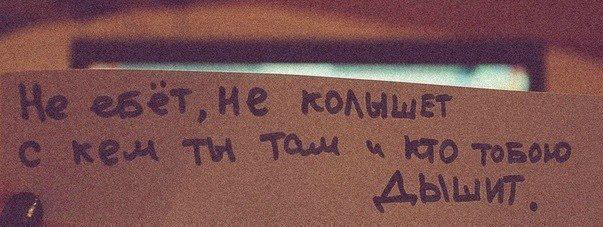 Не ебёт, не колышет
с кем ты там и кто тобою
дышит.